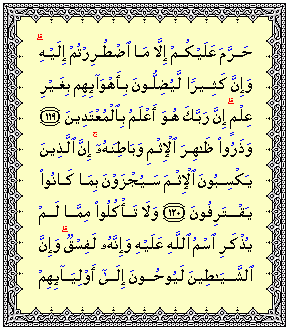 حَرَّمَ عَلَيْكُمْ إِلَّا مَا ٱضْطُرِرْتُمْ إِلَيْهِ ۗ
وَإِنَّ كَثِيرًا لَّيُضِلُّونَ بِأَهْوَآئِهِم بِغَيْرِ
عِلْمٍ ۗ إِنَّ رَبَّكَ هُوَ أَعْلَمُ بِٱلْمُعْتَدِينَ ﴿١١٩﴾
وَذَرُوا۟ ظَـٰهِرَ ٱلْإِثْمِ وَبَاطِنَهُۥٓ ۚ إِنَّ ٱلَّذِينَ
يَكْسِبُونَ ٱلْإِثْمَ سَيُجْزَوْنَ بِمَا كَانُوا۟
يَقْتَرِفُونَ ﴿١٢٠﴾ وَلَا تَأْكُلُوا۟ مِمَّا لَمْ
يُذْكَرِ ٱسْمُ ٱللَّهِ عَلَيْهِ وَإِنَّهُۥ لَفِسْقٌ ۗ وَإِنَّ
ٱلشَّيَـٰطِينَ لَيُوحُونَ إِلَىٰٓ أَوْلِيَآئِهِمْ